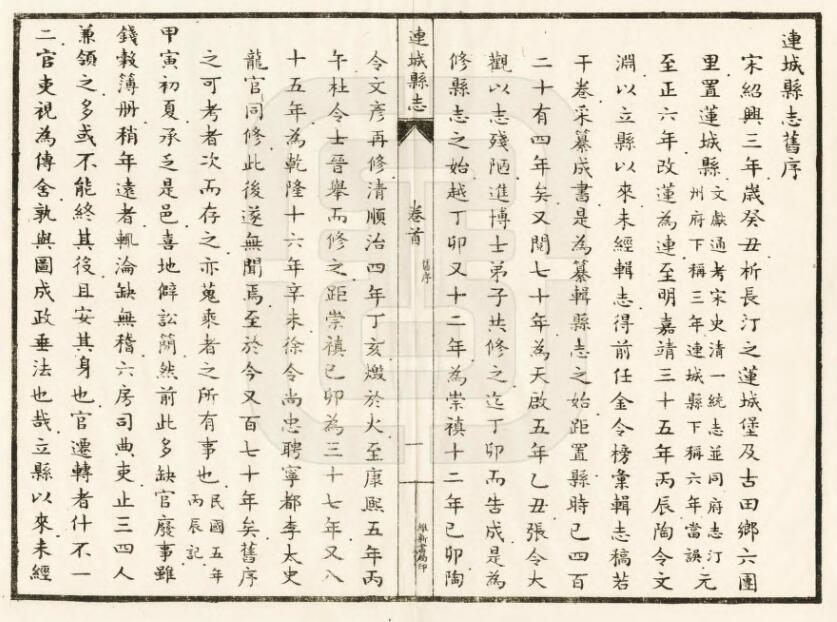 連城縣志舊序
宋紹興三年歲癸丑析長汀之蓮城堡及古田鄉六團
里置蓮城縣文獻通考宋史清一統志並同府志汀州府下稱三年連城縣下稱六年當誤元
至正六年改蓮為連至明嘉靖三十五年丙辰陶令文
淵以立縣以來未經輯志得前任金令榜彙輯志稿若
干卷采纂成書是為纂輯縣志之始距置縣時已四百
二十有四年矣又閱七十年為天啟五年乙丑張令大
觀以志殘陋進博士弟子共修之迄丁卯而告成是為
修縣志之始越丁卯又十二年為崇禎十二年己卯陶
連城縣志
卷首
舊序
一
維新書局印
令文彥再修清順治四年丁亥燬於火至康熙五年丙
午杜令士晉舉而修之距崇禎己卯為三十七年又八
十五年為乾隆十六年辛未徐令尚忠聘寧都李太史
龍官同修此後遂無聞焉至於今又百七十年矣舊序
之可考者次而存之亦蒐乘者之所有事也民國五年丙辰記
甲寅初夏承乏是邑喜地僻訟簡然前此多缺官廢事雖
錢穀簿册稍年遠者輒淪缺無稽六房司典吏止三四人
兼領之多或不能終其後且安其身也官遷轉者什不一
二官吏視為傳舍孰與圖成政垂法也哉立縣以來未經